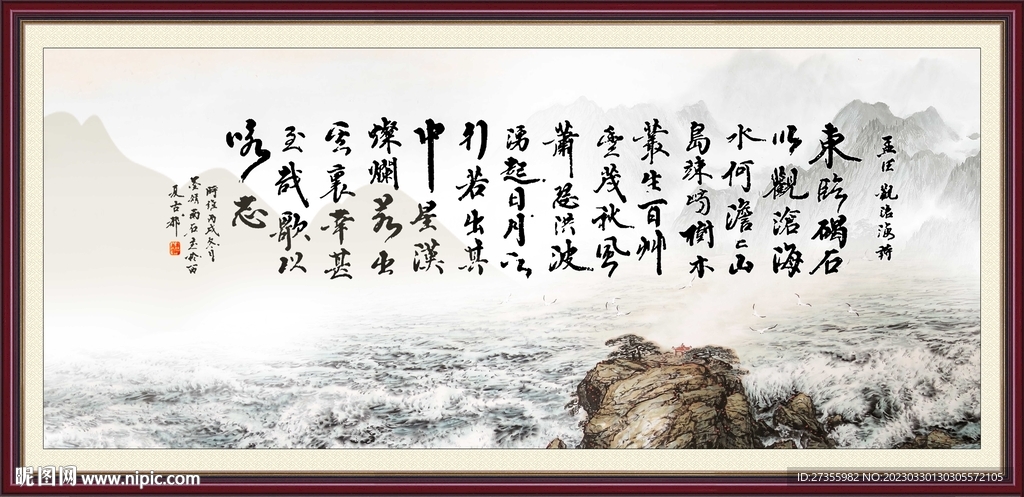 孟德 觀滄海詩
東臨碣石
以觀滄海
水何澹〻山
島竦峙樹木
叢生百艸
豐茂秋風
蕭瑟洪波
湧起日月之
行若出其
中星漢
燦爛若出
其裏幸甚
至哉歌以
咏志
時維丙戌冬月
夏古都
昵图网 www.nipic.com
ID:27355982 NO:20230330130305572105